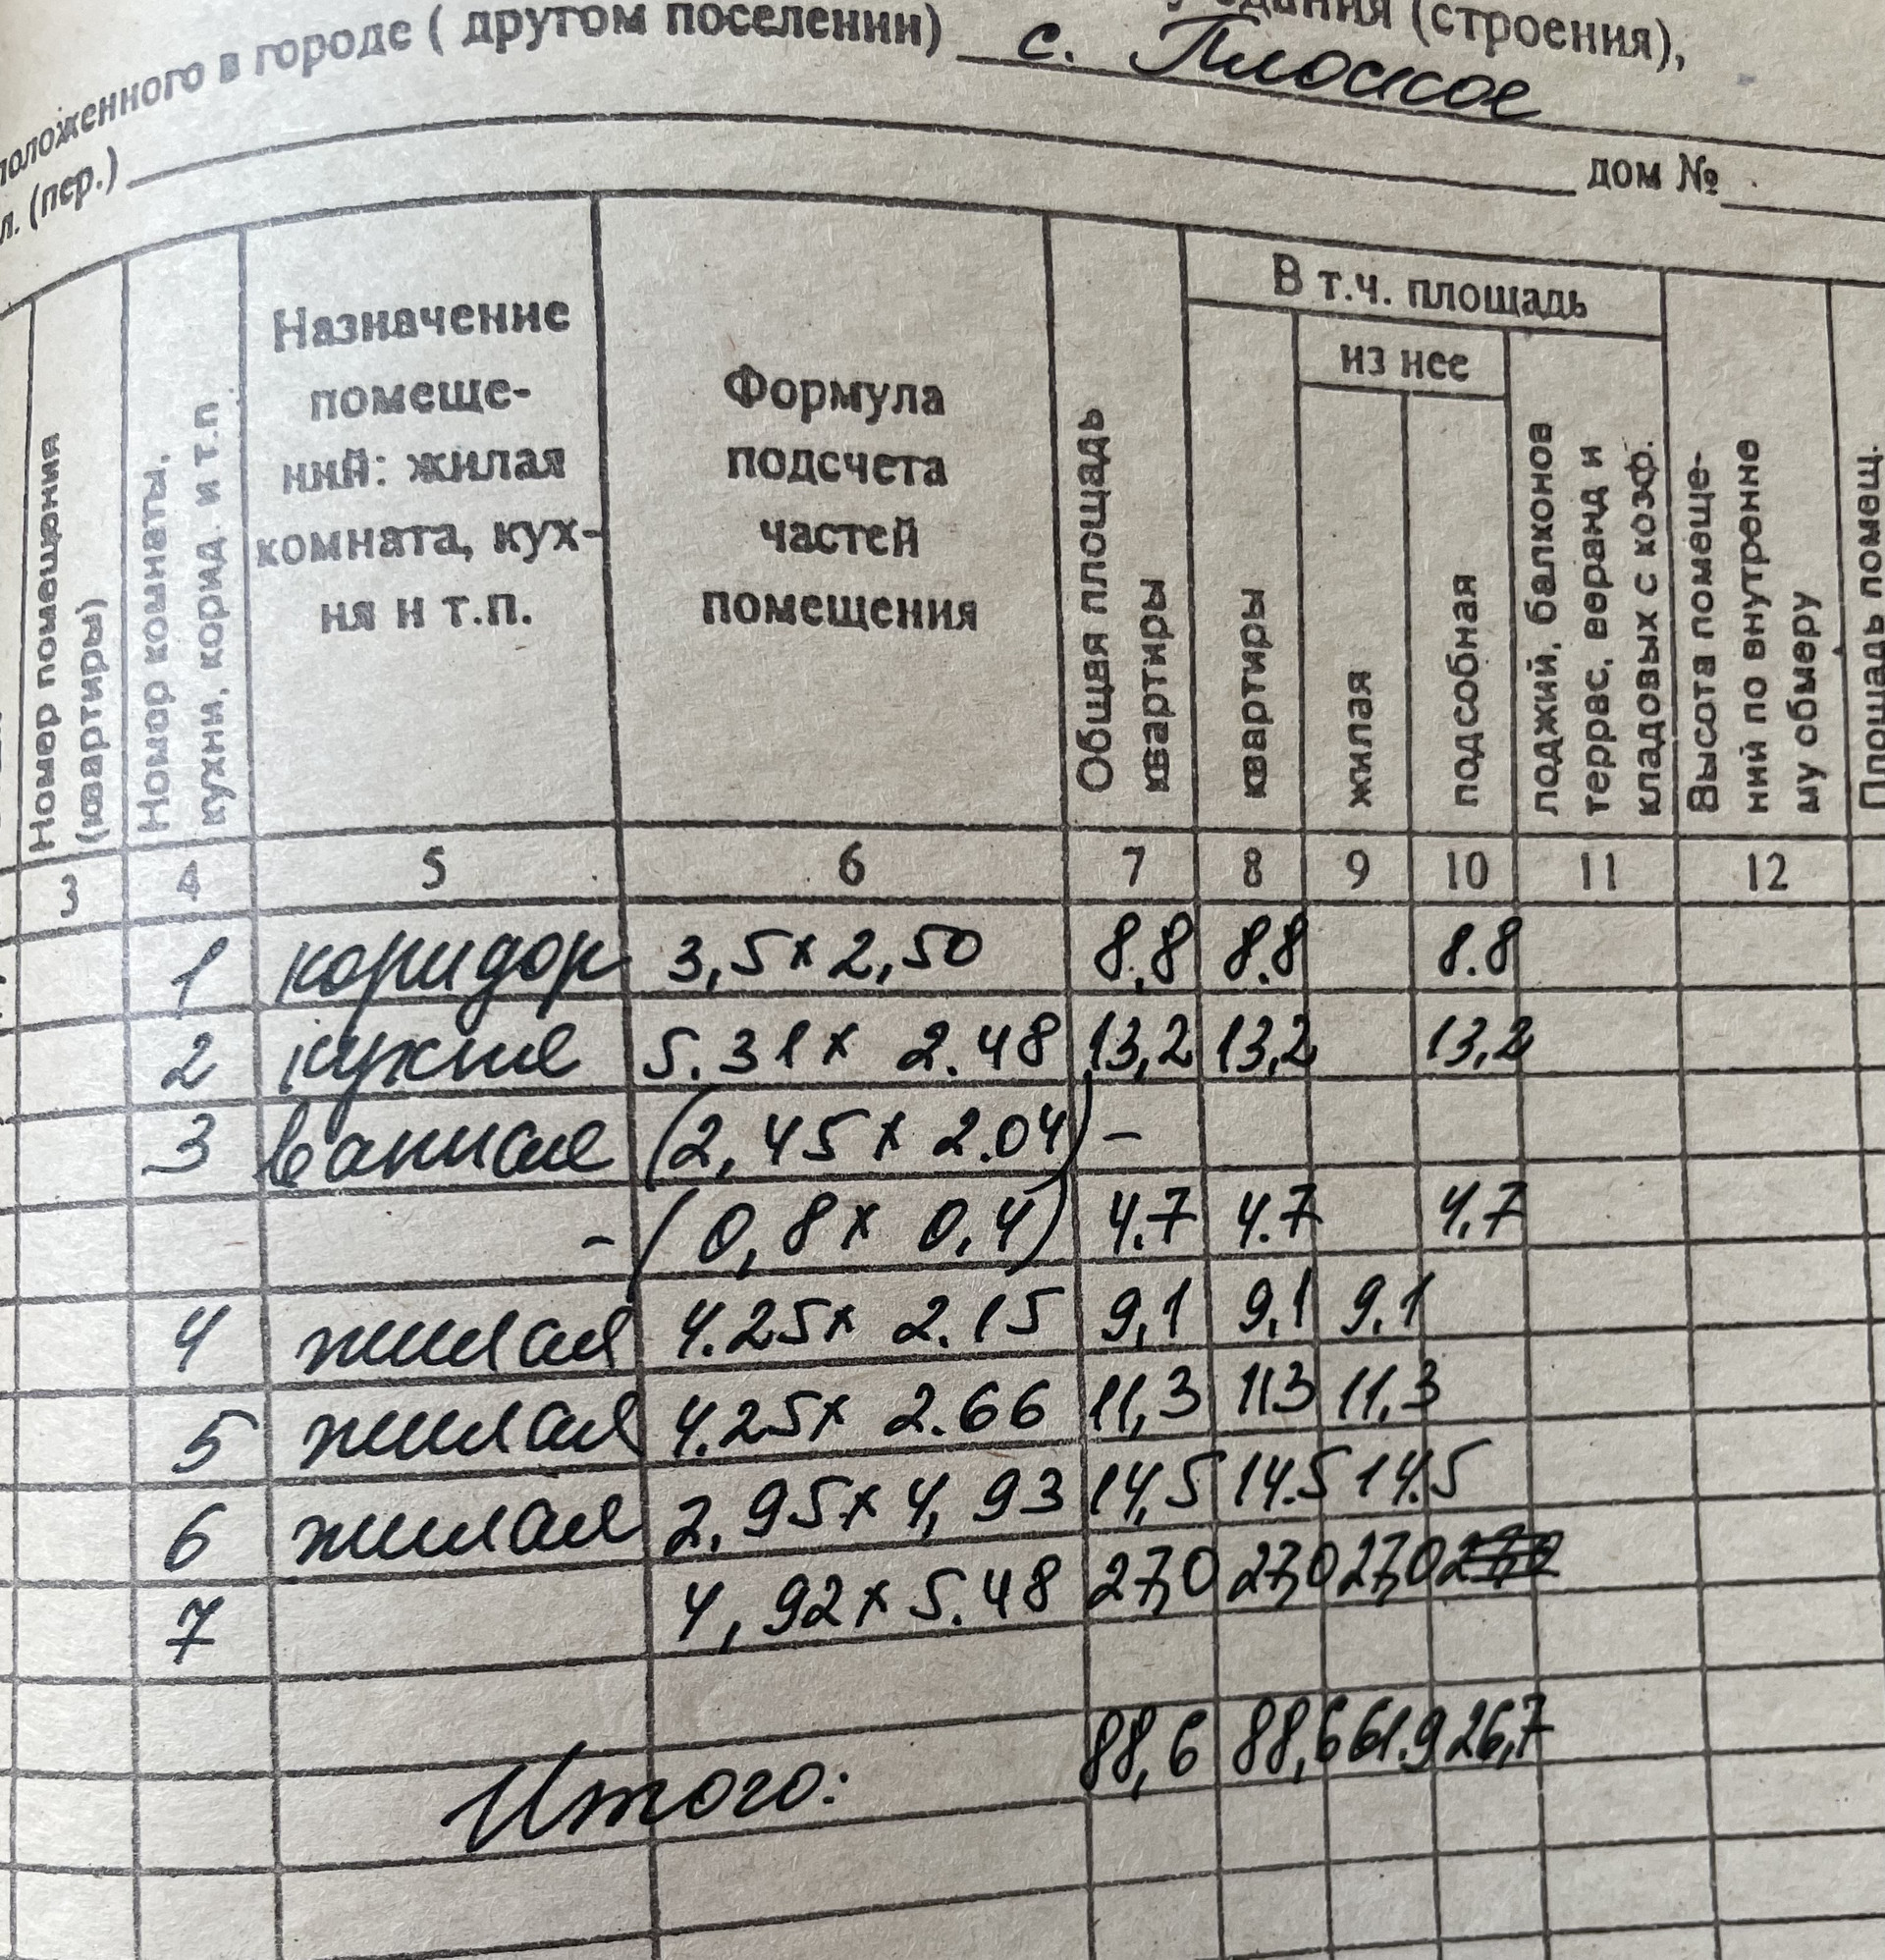 здания (строения),
положенного в городе ( другом поселении) с. Плоское
л. (пер.) дом №
Номер помещения (квартиры)
Номер комнаты, кухни, корид. и т.п
Назначение помеще-
ний: жилая
комната, кух-
ня и т.п.
Формула
подсчета
частей
помещения
Общая площадь квартиры
В т.ч. площадь
квартиры
из нее
жилая
подсобная
лоджий, балконов террас, веранд и кладовых с коэф.
Высота помеще-
ний по внутренне
му обмеру
Площадь помещ.
3 4 5 6 7 8 9 10 11 12
1 коридор 3,5 x 2,50 8,8 8.8 8.8
2 кухня 5.31 x 2.48 13,2 13,2 13,2
3 ванная (2,45 x 2.04) –
– (0,8 x 0,4) 4.7 4.7 4.7
4 жилая 4.25 x 2.15 9,1 9,1 9,1
5 жилая 4.25 x 2.66 11,3 11.3 11,3
6 жилая 2.95 x 4,93 14,5 14.5 14.5
7 4,92 x 5.48 27,0 27,0 27,0
Итого: 88,6 88,6 61.9 26,7